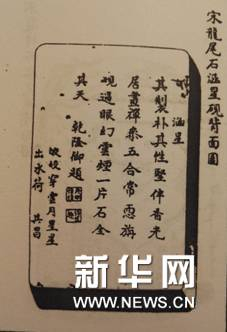 宋龍尾石涵星硯背面圖
涵星
其製朴其性堅伴香光
居畫禪參五合常惠旃
硯過眼幻雲煙一片石全
其天 乾隆御題
穿雲月星星
出水荷 其昌
新华网
WWW.NEWS.CN